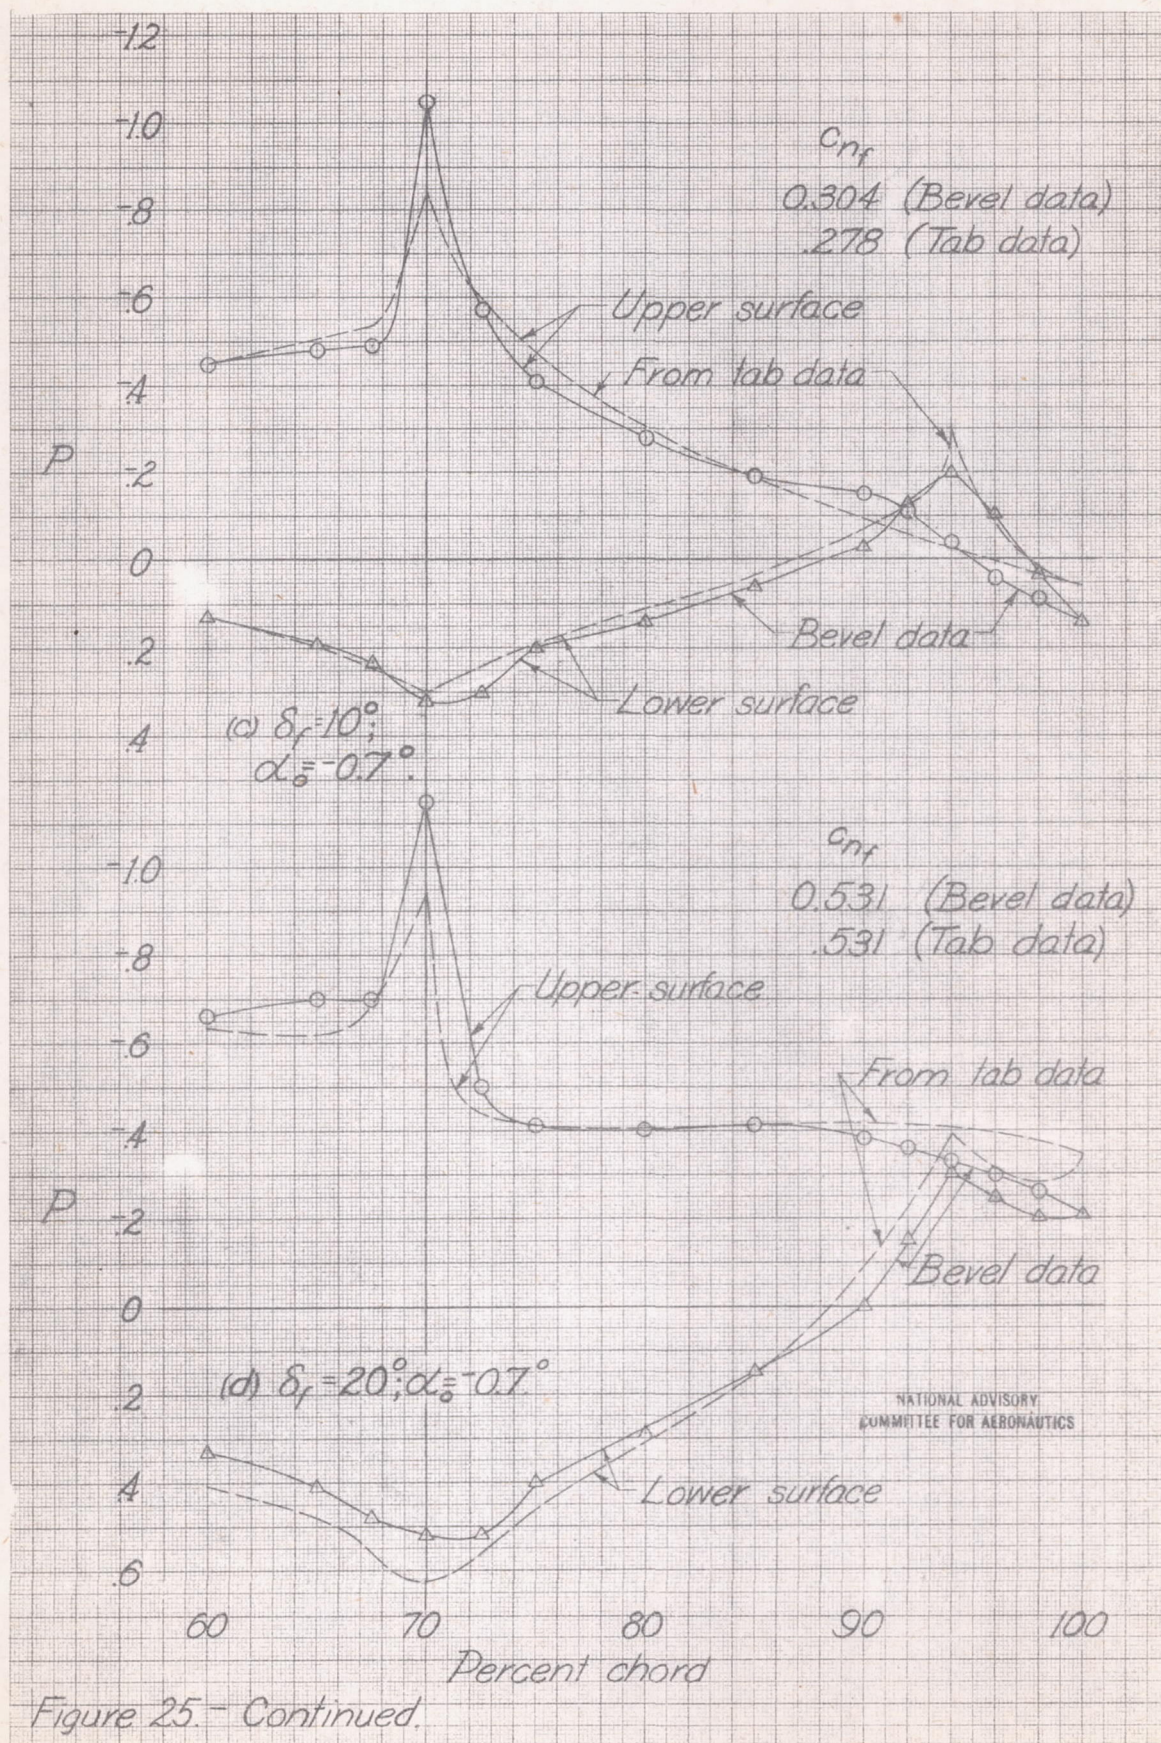 -1.2
-1.0
-.8
-.6
-.4
P
-.2
0
.2
.4
c_nf
0.304 (Bevel data)
.278 (Tab data)
Upper surface
From tab data
Bevel data
Lower surface
(c) δf=10°;
α₀=-0.7°.
-1.0
-.8
-.6
-.4
P
-.2
0
.2
.4
.6
c_nf
0.531 (Bevel data)
.531 (Tab data)
Upper surface
From tab data
Bevel data
(d) δf=20°; α₀=-0.7°
NATIONAL ADVISORY
COMMITTEE FOR AERONAUTICS
Lower surface
60 70 80 90 100
Percent chord
Figure 25.- Continued.